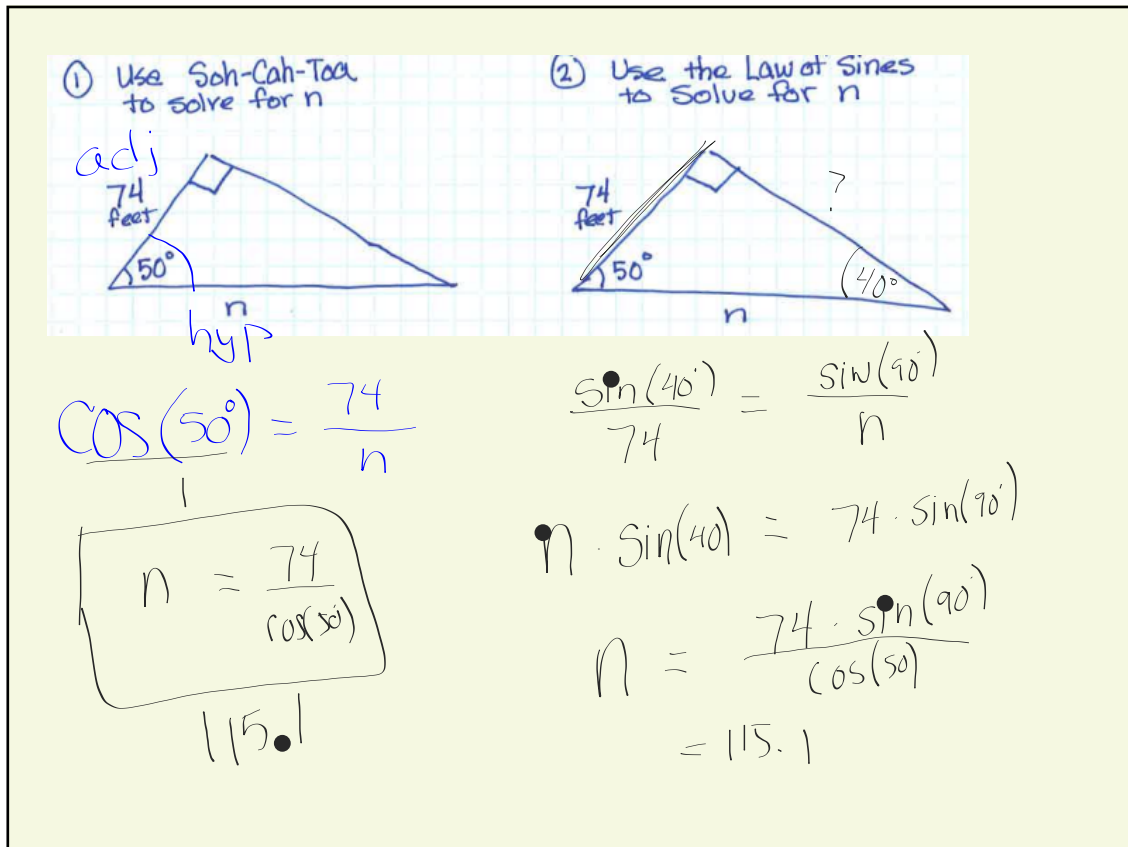 ① Use Soh-Cah-Toa
to solve for n
adj
74
feet
50°
n
hyp
cos(50°) = 74
n
1
n = 74
cos(50°)
115.1
② Use the Law of Sines
to Solve for n
74
feet
?
50°
40°
n
sin(40°) = sin(90°)
74 n
n · Sin(40) = 74 · sin(90°)
n = 74 · sin(90°)
cos(50)
= 115.1